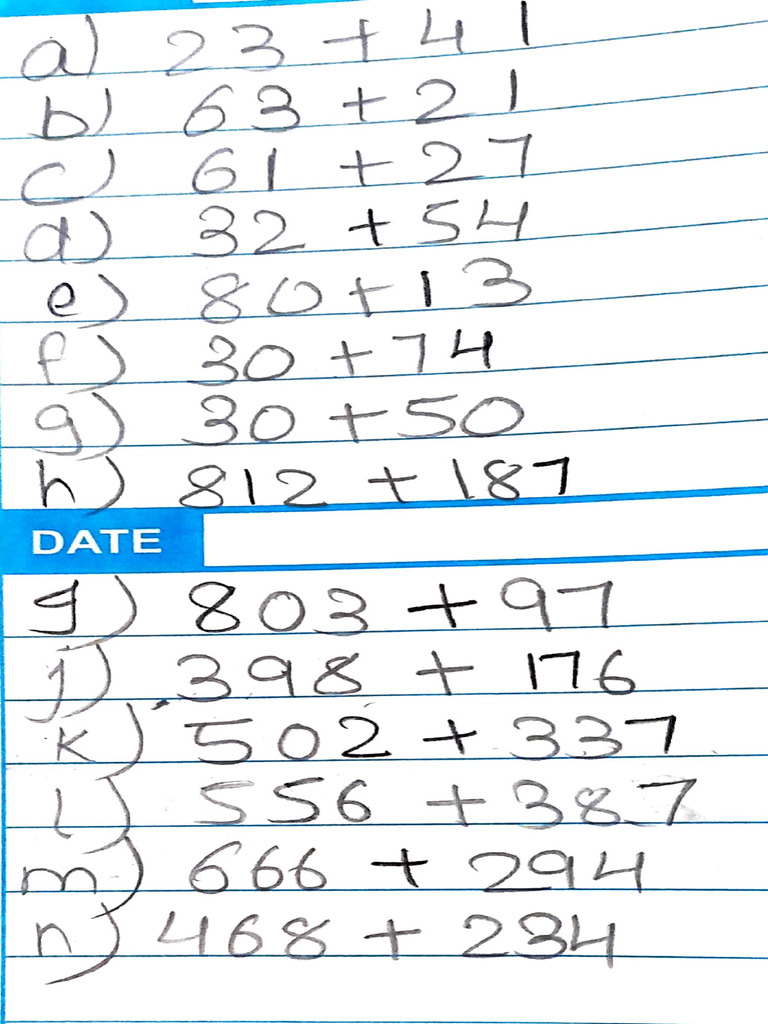 a) 23 + 41
b) 63 + 21
c) 61 + 27
d) 32 + 54
e) 80 + 13
f) 30 + 74
g) 30 + 50
h) 812 + 187
DATE
g) 803 + 97
j) 398 + 176
k) 502 + 337
l) 556 + 387
m) 666 + 294
n) 468 + 234